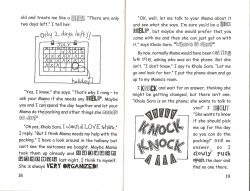 old and treats me like a
"There are only
two days left." I tell her.
only 2 days left!!
JULY
holiday!
"Yes, I know," she says. "That's why I rang - to
ask your Mama if she needs any HELP. Maybe
you and I can spend the day together and let your
Mama do the packing and other things she needs
to do?"
"Oh yes, Khala Sara. I would LOVE that,"
I reply. "But I think Mama needs my help with the
packing." I have a look around in the hallway but
can't see the suitcases we bought. Maybe Mama
took them up already and
last night, I think to myself.
She is always VERY ORGANIZED!
18
"OK, well, let me talk to your Mama about it
and see what she says. I'm sure you'd be a BIG
HELP, but maybe she would prefer that you
come with me and then she can just get on with
it," says Khala Sara
By now, normally Mama would have been
me, asking who was on the phone. But she
isn't. "I don't know," I say to Khala Sara. "Let me
go and look for her." I put the phone down and go
up to my Mama's room.
I KNOCK and wait for an answer, thinking she
might be getting changed, but there isn't one.
"Khala Sara is on the phone; she wants to talk to
you!" I
"She wants to know
if she should pick
me up for the day
so you can do the
packing!" Still no
answer, so I
slowly push
the door and
find no one there.
KNOCK
KNOCK
19